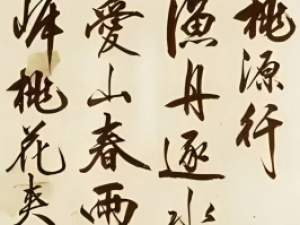 桃源行
漁舟逐水
愛山春兩
岸桃花夾